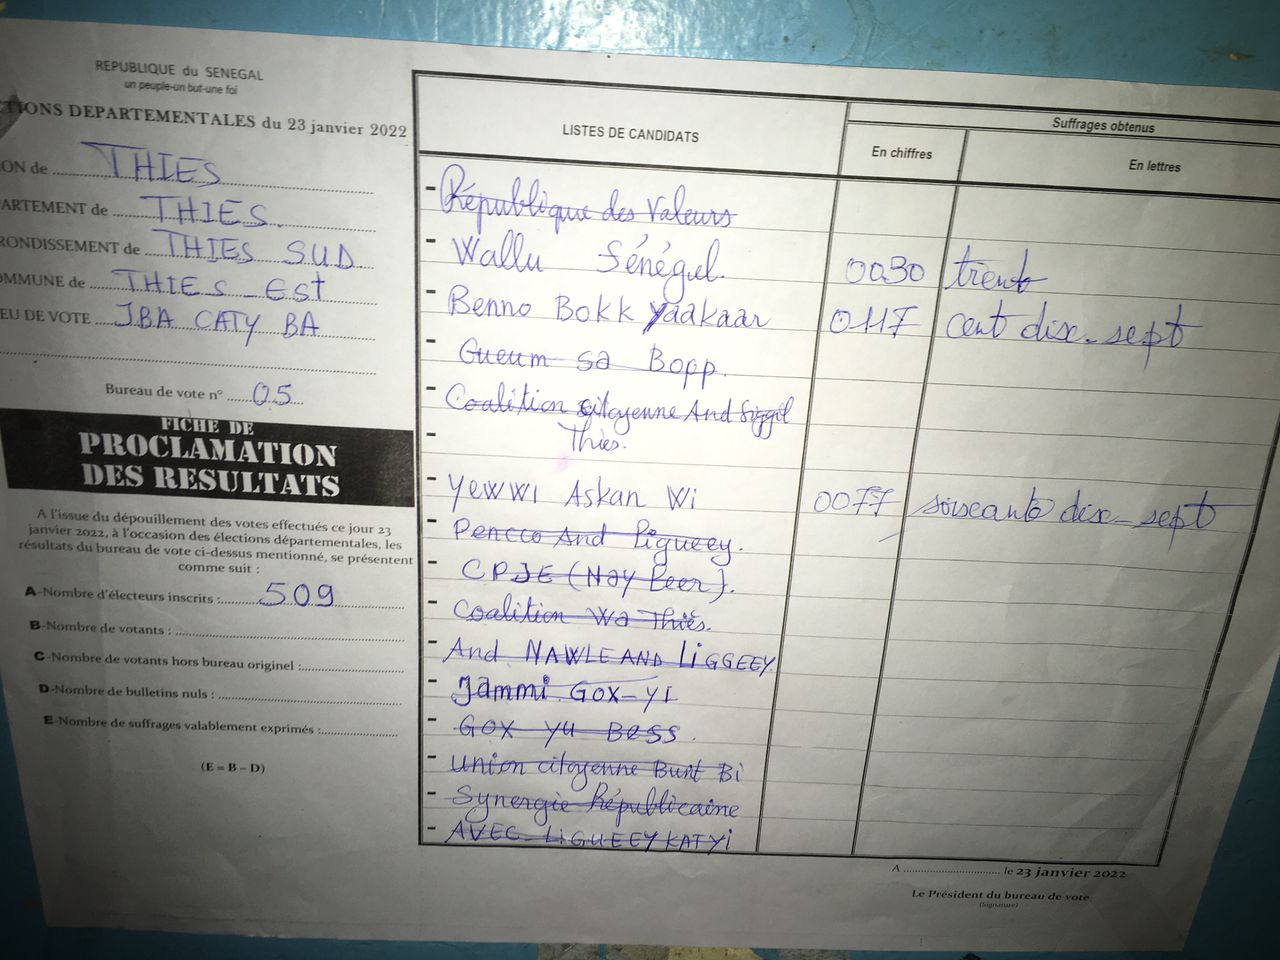 REPUBLIQUE du SENEGAL
un peuple-un but-une foi
TIONS DEPARTEMENTALES du 23 janvier 2022
ON de THIES
ARTEMENT de THIES
RONDISSEMENT de THIES SUD
OMMUNE de THIES - Est
EU DE VOTE IBA CATY BA
Bureau de vote n° 05
FICHE DE
PROCLAMATION
DES RESULTATS
A l'issue du dépouillement des votes effectués ce jour 23
janvier 2022, à l'occasion des élections départementales, les
résultats du bureau de vote ci-dessus mentionné, se présentent
comme suit :
A-Nombre d'électeurs inscrits : 509
B-Nombre de votants :
C-Nombre de votants hors bureau originel :
D-Nombre de bulletins nuls :
E-Nombre de suffrages valablement exprimés :
(E = B – D)
LISTES DE CANDIDATS
Suffrages obtenus
En chiffres
En lettres
- République des Valeurs
- Wallu Sénégal 0030 trente
- Benno Bokk Yaakaar 0117 cent dix-sept
- Gueum sa Bopp.
- Coalition citoyenne And Siggil
- Thies.
- Yewwi Askan Wi 0077 soixante dix-sept
- Pencco And Ligueey.
- CPJE (Nay Leer).
- Coalition Wa Thiès.
- And NAWLE AND LiGGEEY
- Jammi GOX-Yi
- Gox yu Bess.
- Union citoyenne Bunt Bi
- Synergie Républicaine
- AVEC LiGUEEY KAT Yi
A le 23 janvier 2022
Le Président du bureau de vote
(Signature)